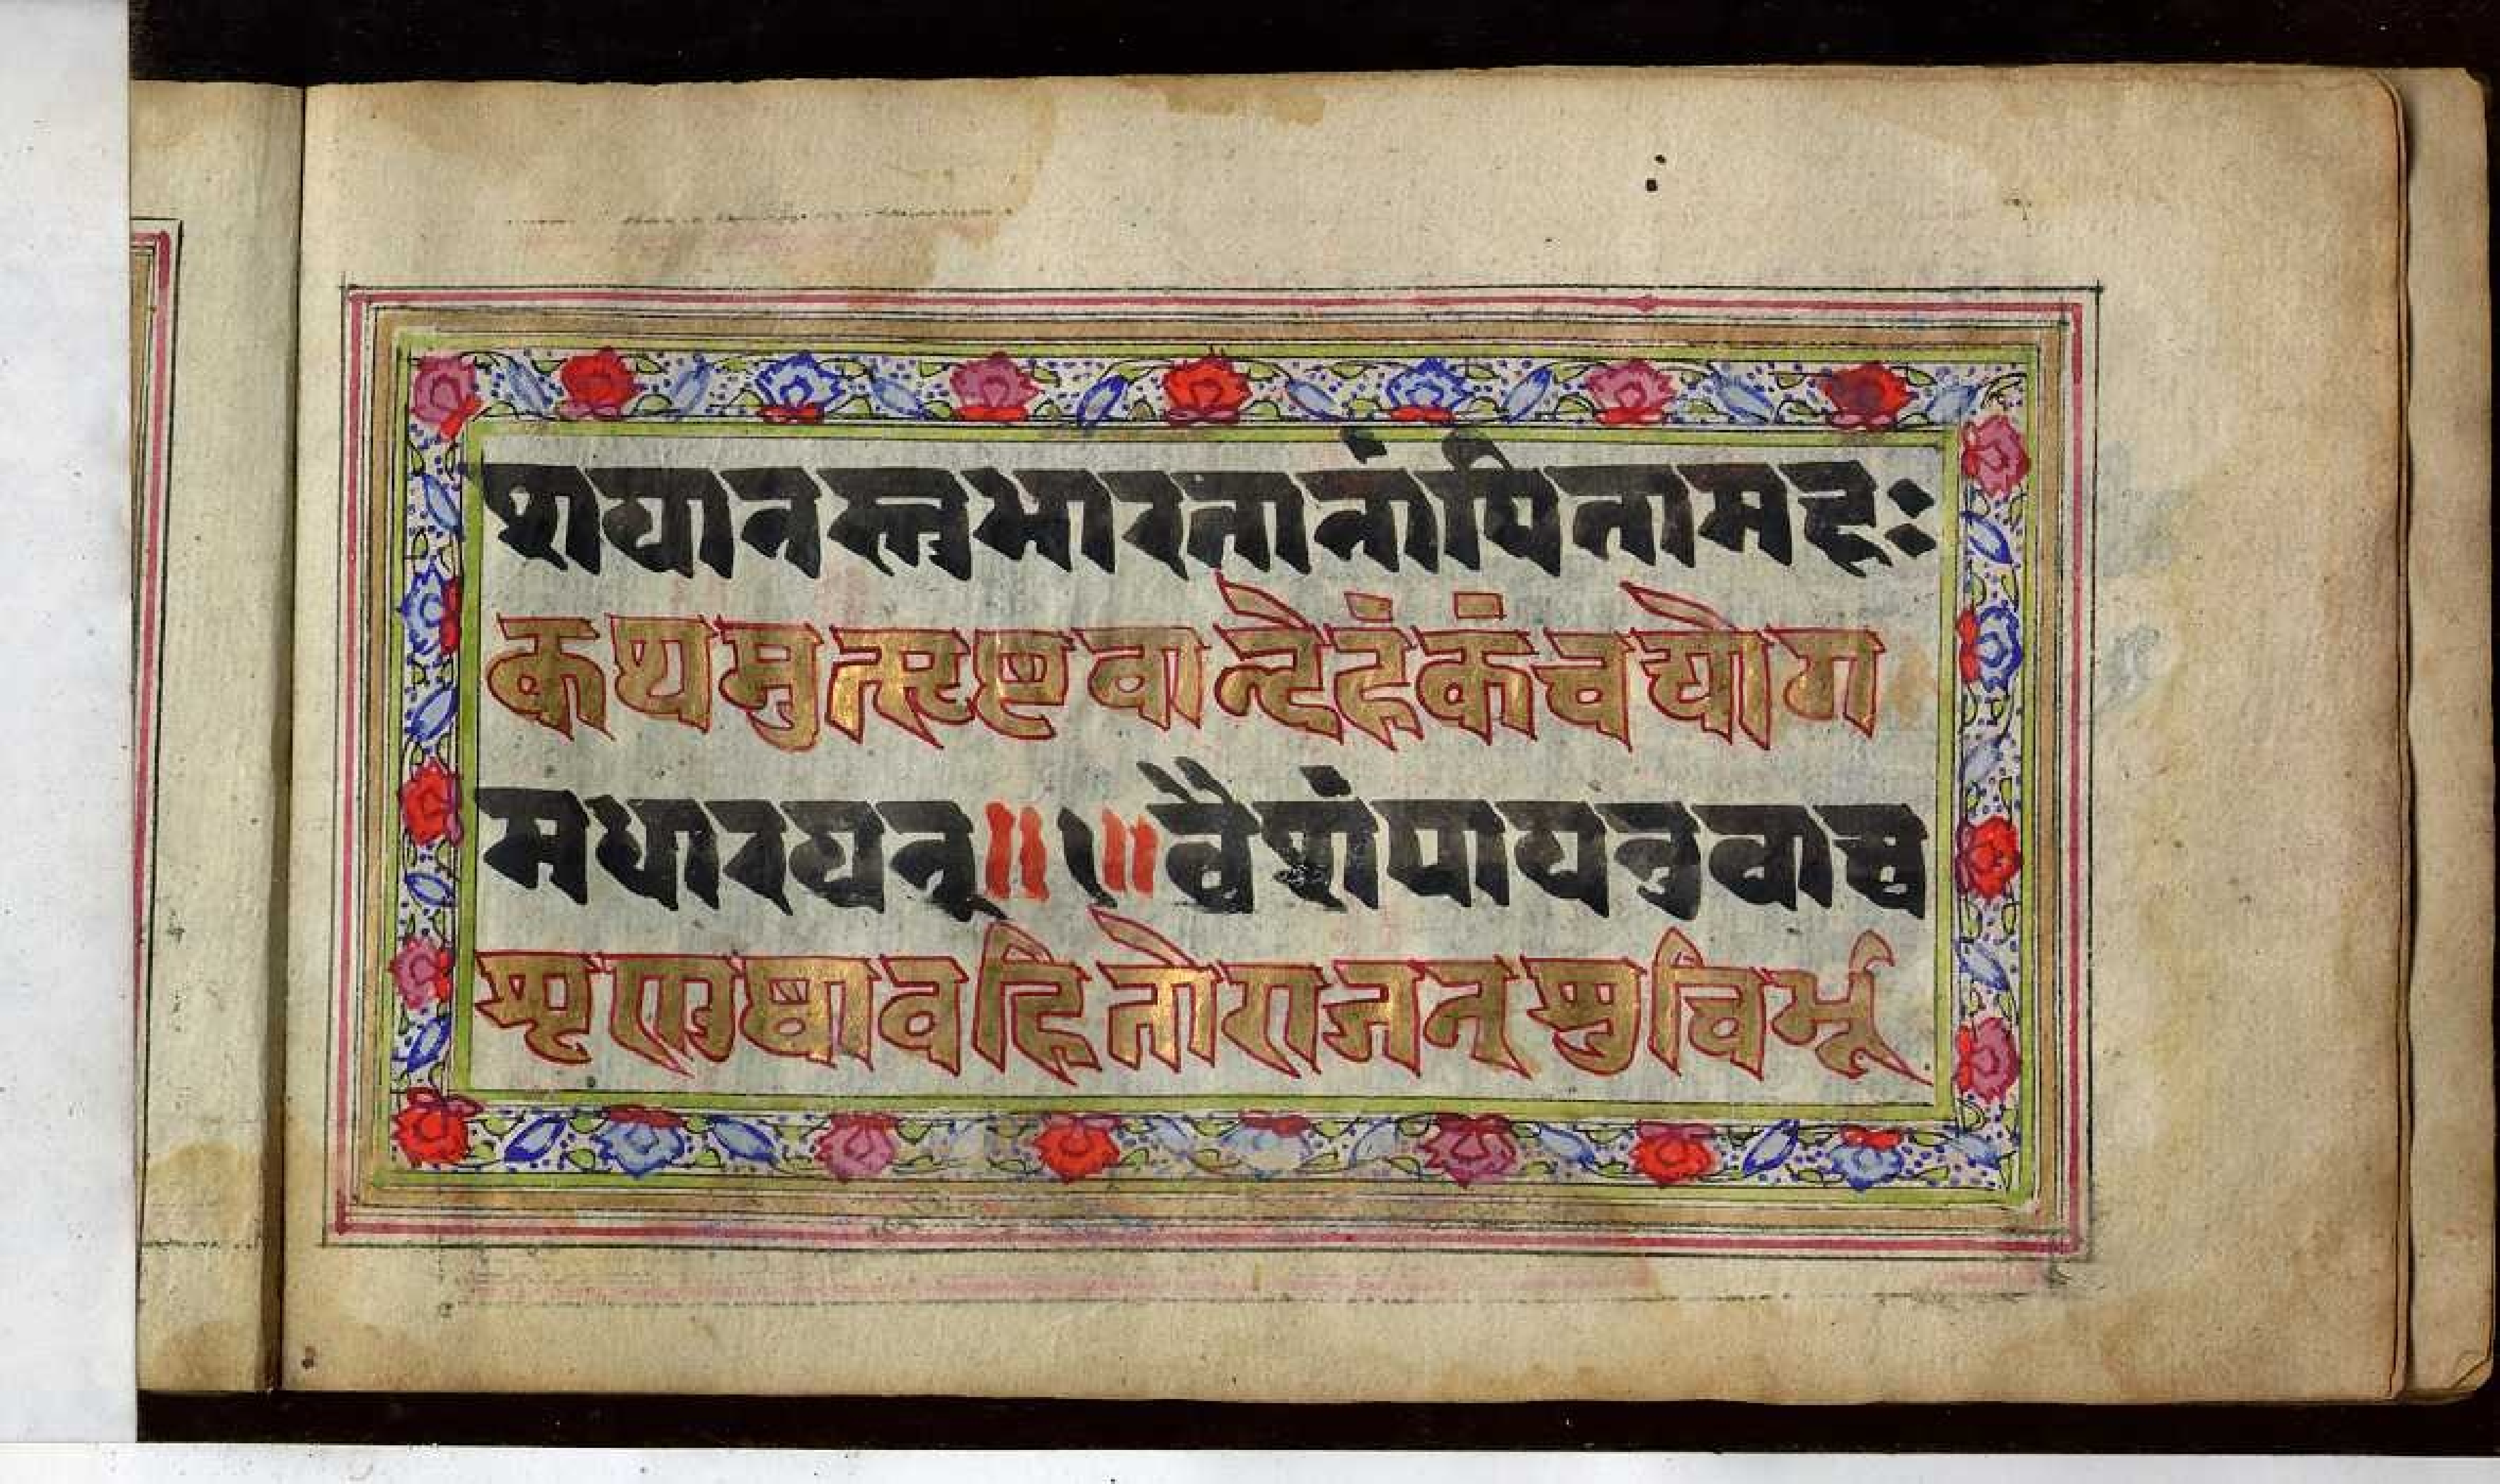 शयानस्तुभारतानांपितामहः
कथमुत्सृष्टवान्देहंकंचयोग
मधारयत्॥१॥वैशंपायनउवाच
शृणुष्वावहितोराजन्शुचिर्भू